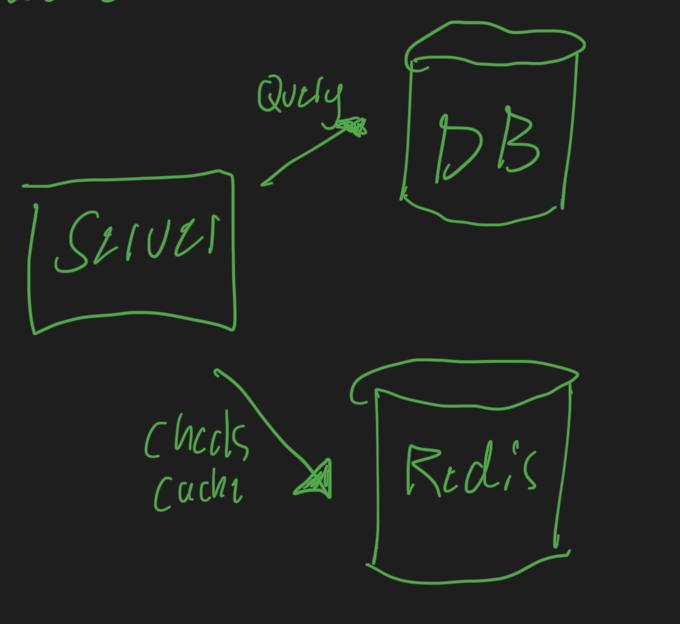 Query
DB
Server
Checks
cache
Redis